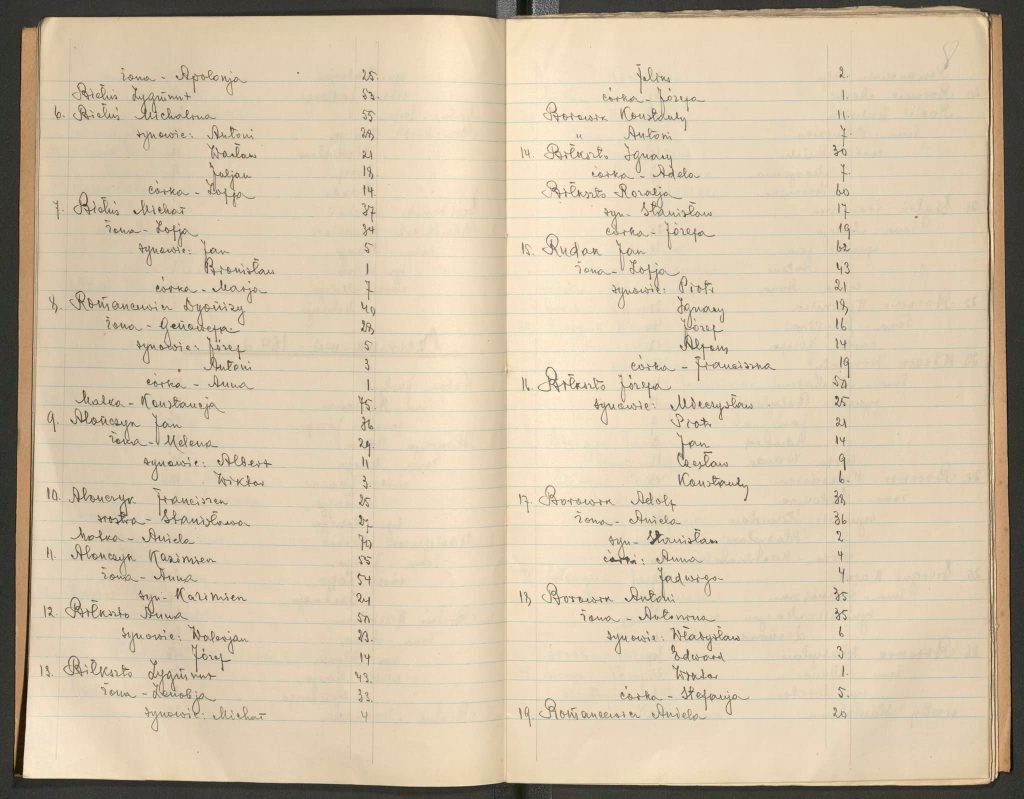 żona - Apolonja 25.
Bieluś Zygmunt 53.
6. Bieluś Michalina 55
synowie: Antoni 28
Wacław 21
Juljan 18
córka - Zofja 14
7. Bieluś Michał 37
żona - Zofja 34
synowie: Jan 5
Bronisław 1
córka - Marja 7
8. Romancewicz Dyonizy 40
żona - Genowefa 28
synowie: Józef 5
Antoni 3
córka - Anna 1
Matka - Konstancja 75.
9. Alończyk Jan 36
żona - Helena 29.
synowie: Albert 11
Wiktor 3.
10. Alończyk Franciszek 25
siostra - Stanisława 27
Matka - Aniela 70
11. Alończyk Kazimierz 55
żona - Anna 54
syn - Kazimierz 24
12. Biłkszto Anna 50
synowie: Walerjan 23.
Józef 14
13. Biłkszto Zygmunt 43.
żona - Zenobja 33.
synowie: Michał 4
8
Feliks 2.
córka - Józefa 1.
Borowik Konstanty 11.
" Antoni 7
14. Biłkszto Ignacy 30
córka - Adela 7
Biłkszto Rozalja 60
syn - Stanisław 17
córka - Józefa 19
15. Rudak Jan 62
żona - Zofja 43
synowie: Piotr 21
Ignacy 18
Józef 16
Alfons 14
córka - Franciszka 19
16. Biłkszto Józefa 50
synowie: Mieczysław 25
Piotr 21
Jan 14
Czesław 9
Konstanty 6.
17. Borowik Adolf 38
żona - Aniela 36
syn - Stanisław 2
córki: Anna 4
Jadwiga 4.
18. Borowik Antoni 35
żona - Antonina 35
synowie: Władysław 6
Edward 3
Wiktor 1.
córka - Stefanja 5.
19. Romancewicz Aniela 20